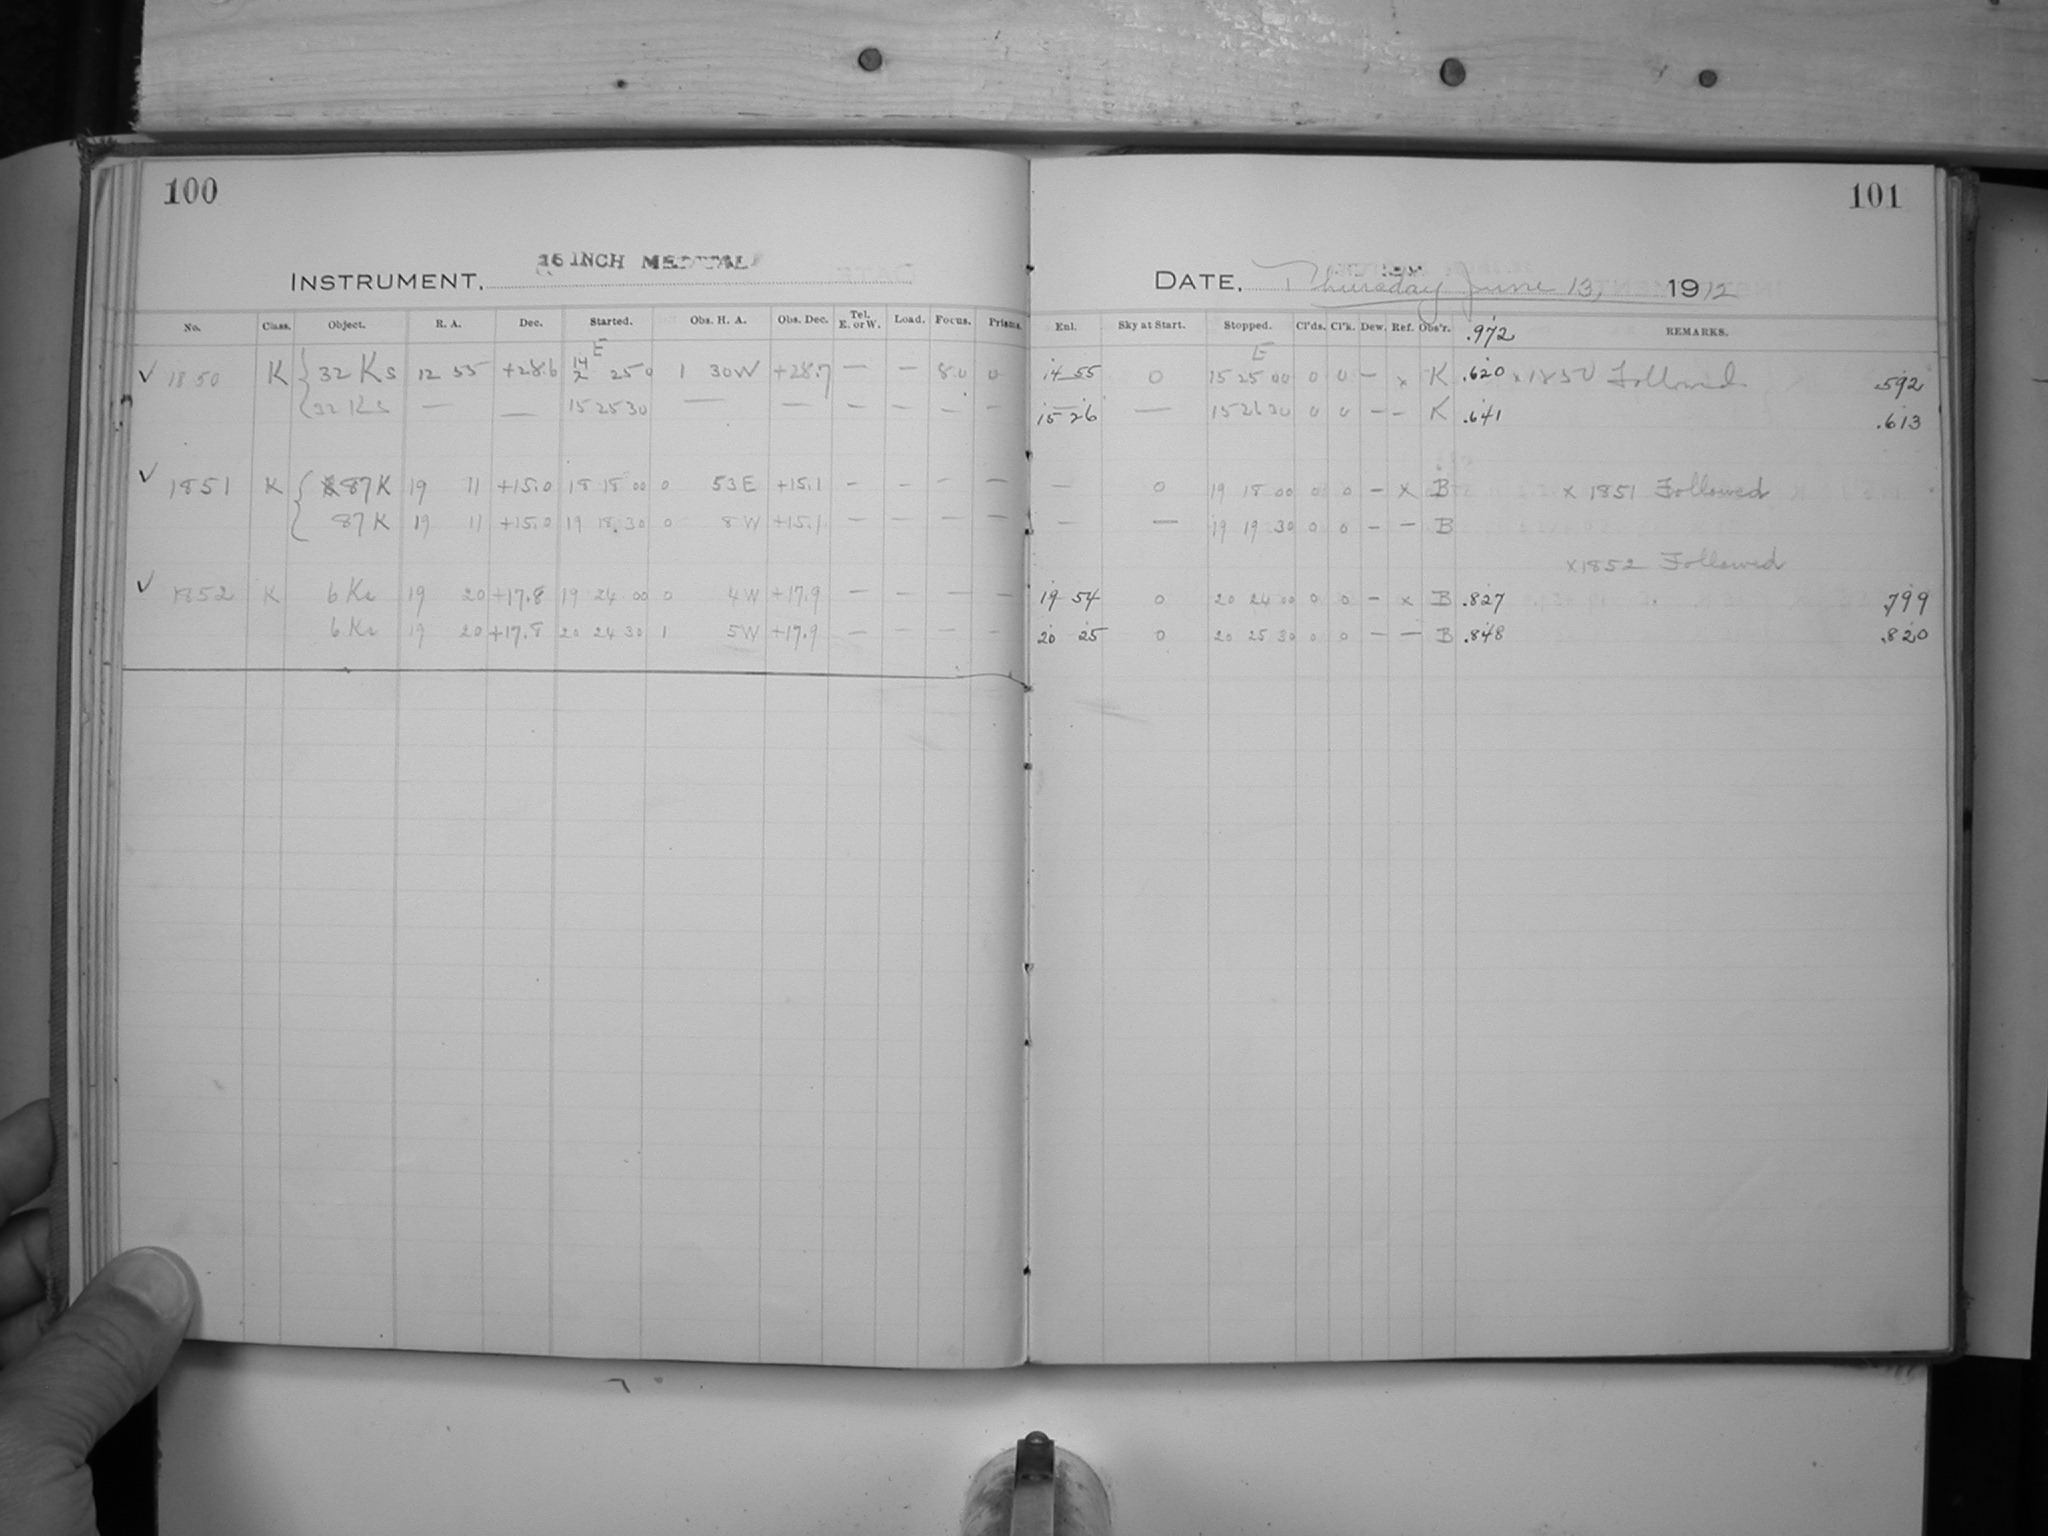 100
16 INCH METCALF
INSTRUMENT.
No. Class. Object. R. A. Dec. Started. Obs. H. A. Obs. Dec. Tel. E. or W. Load. Focus. Prisms.
E
√ 1850 K { 32 Ks 12 55 +28.6 14 25 0 1 30W +28.7 — — 8.0 0
32 Ks — — 15 25 30 — — — — — —
√ 1851 K { 87 K 19 11 +15.0 18 18 00 0 53 E +15.1 — — — —
87 K 19 11 +15.0 19 18 30 0 8 W +15.1 — — — —
√ 1852 K 6 Ks 19 20 +17.8 19 24 00 0 4 W +17.9 — — — —
6 Ks 19 20 +17.8 20 24 30 1 5 W +17.9 — — — —
101
DATE. Thursday June 13, 1912
Enl. Sky at Start. Stopped. Cl'ds. Cl'k. Dew. Ref. Obs'r. .972 REMARKS.
E
14 55 0 15 25 00 0 0 — x K .620 x 1850 Followed .592
15 26 — 15 26 30 0 0 — — K .641 .613
— 0 19 18 00 0 0 — x B x 1851 Followed
— — 19 19 30 0 0 — — B
x 1852 Followed
19 54 0 20 24 00 0 0 — x B .827 .799
20 25 0 20 25 30 0 0 — — B .848 .820